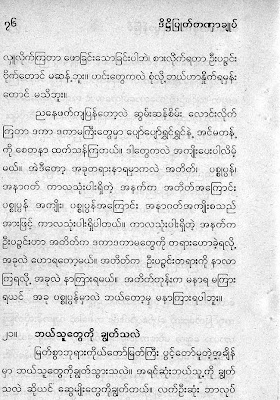 ၇၆ ဒိဋ္ဌိပြုတ်တဏှာချုပ်
လျှလိုက်ကြတာ ဖောခြင်းသောခြင်းပါဘဲ၊ စားလိုက်ရတာ ဦးပဉ္ဇင်း
ဗိုက်တောင် မဆန့်ဘူး။ ဟင်းတွေကလဲ စုံလို့ ဘယ်ဟာနှိုက်ရမှန်း
တောင် မသိဘူး။
ညနေဖက်ကျပြန်တော့လဲ ဆွမ်းဆန်စိမ်း လောင်းလိုက်
ကြတာ ဒကာ ဒကာမကြီးတွေမှာ ပျော်ပျော်ရွှင်ရွှင်နဲ့ အင်မတန့်
ကို စေတနာ ထက်သန်ကြတယ်။ ဒါတွေကလဲ အကျိုးပေးပါလိမ့်
မယ်။ အဲဒီတော့ အခုတရားနာရမှာကလဲ အတိတ်၊ ပစ္စုပ္ပန်၊
အနာဂတ် ကာလသုံးပါးရှိတဲ့ အနက်က အတိတ်အကြောင်း
ပစ္စုပ္ပန် အကျိုး၊ ပစ္စုပ္ပန်အကြောင်း အနာဂတ်အကျိုးစသည်
အားဖြင့် ကာလသုံးပါးရှိပါတယ်။ ကာလသုံးပါးရှိတဲ့ အနက်က
ဦးပဉ္ဇင်းဟာ အတိတ်က ဒကာဒကာမတွေကို တရားဟောခဲ့ရလို့
အခုလဲ ဟောရတော့မယ်။ အတိတ်က ဦးပဉ္ဇင်းတရားကို နာလာ
ကြရလို့ အခုလဲ နာကြားရမယ်။ အတိတ်ကုန်းက မနာရ မကြား
ရယင် အခု ပစ္စုပ္ပန်မှာလဲ ဘယ်တော့မှ မနာကြားရပါဘူး။
၂၁။ ဘယ်သူတွေကို ချွတ်သလဲ
မြတ်စွာဘုရားကိုယ်တော်မြတ်ကြီး ပွင့်တော်မူတဲ့အချိန်
မှာ ဘယ်သူတွေကိုချွတ်သွားသလဲ။ အရင်ဆုံးဘယ်သူ့ကို ချွတ်
သလဲ ဆိုယင် ဆွေမျိုးတွေကိုချွတ်တယ်။ လက်ဦးဆုံး ဘာလုပ်